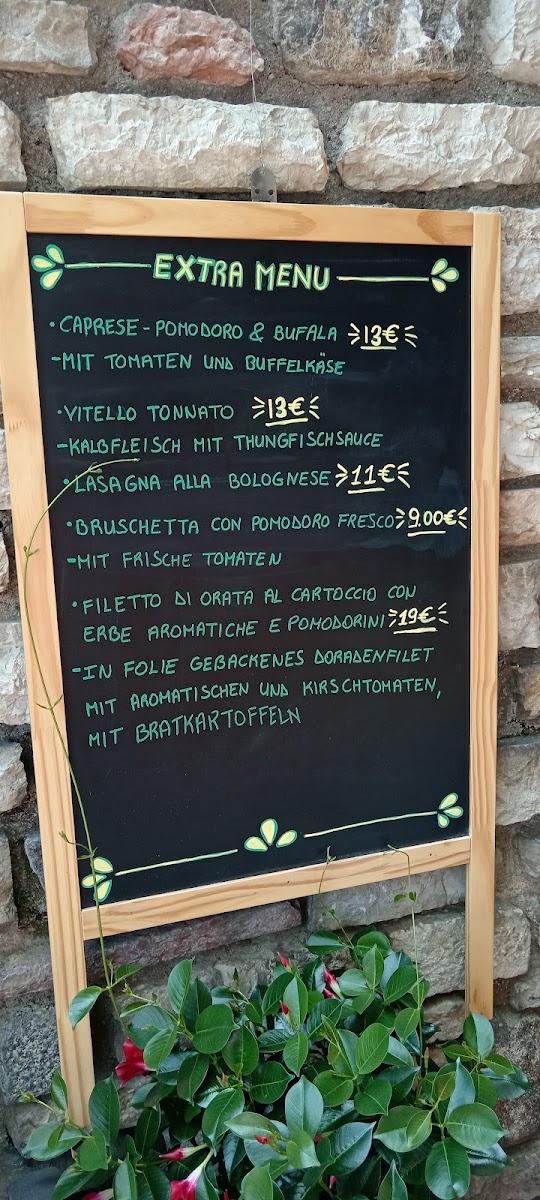 EXTRA MENU
• CAPRESE - POMODORO & BUFALA 13€
- MIT TOMATEN UND BUFFELKÄSE
• VITELLO TONNATO 13€
- KALBFLEISCH MIT THUNGFISCHSAUCE
• LASAGNA ALLA BOLOGNESE 11€
• BRUSCHETTA CON POMODORO FRESCO 9.00€
- MIT FRISCHE TOMATEN
• FILETTO DI ORATA AL CARTOCCIO CON
ERBE AROMATICHE E POMODORINI 19€
- IN FOLIE GEBACKENES DORADENFILET
MIT AROMATISCHEN UND KIRSCHTOMATEN,
MIT BRATKARTOFFELN